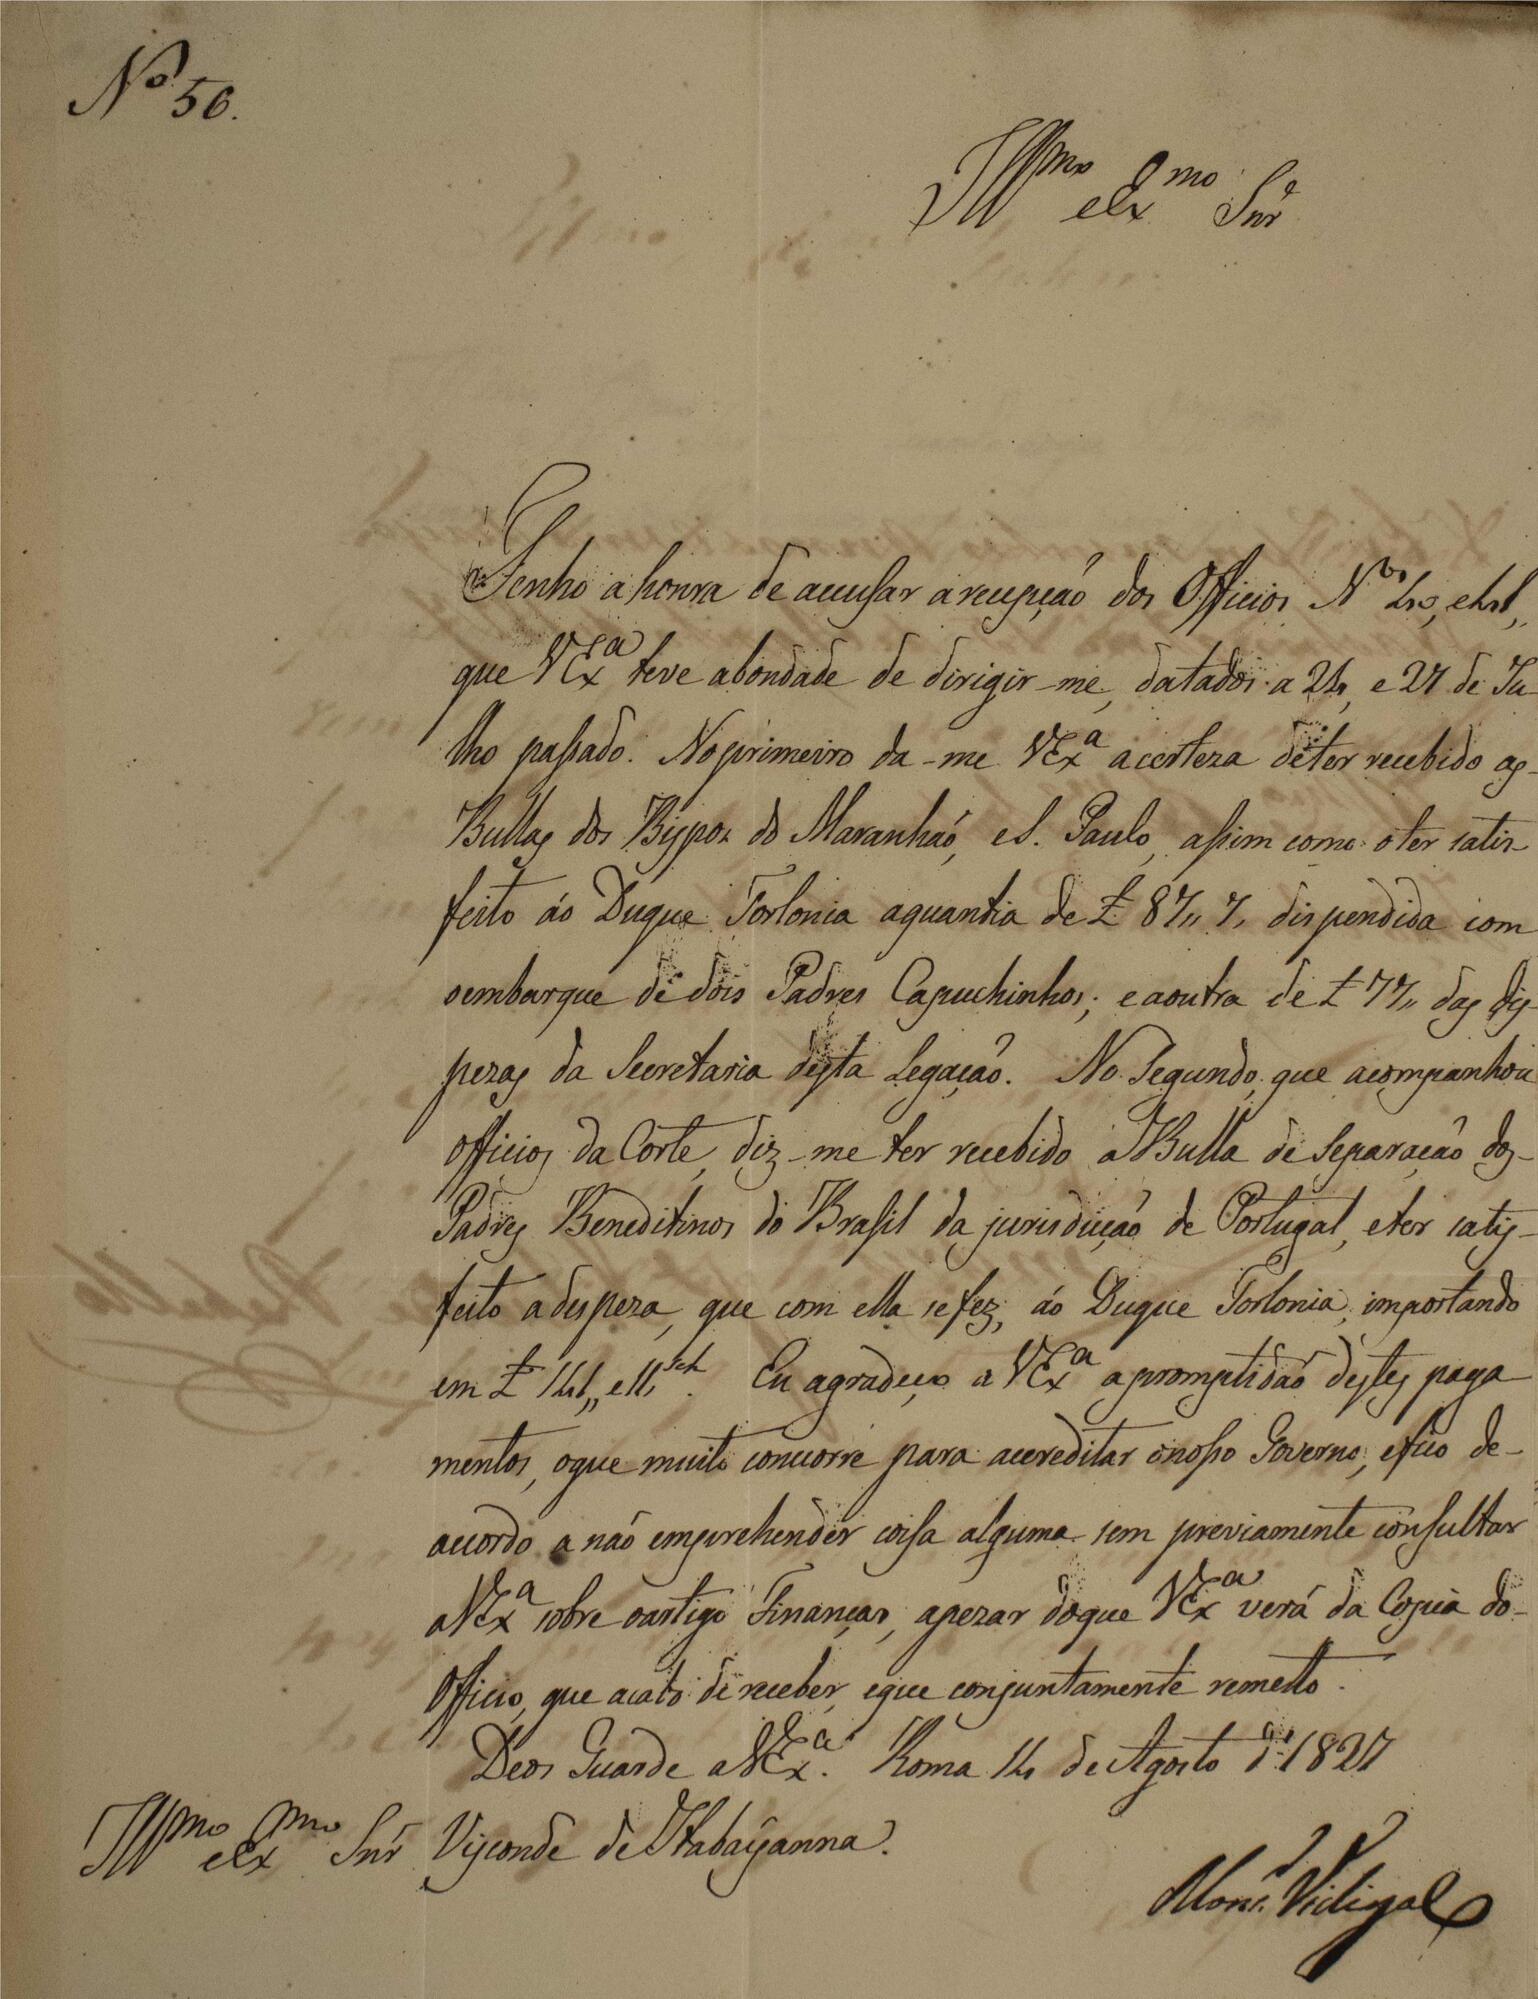 Nº 56.
Illmo e Exmo Snr
Tenho a honra de accusar a recepção dos Officios Nos 40, e 41,
que VExa teve a bondade de dirigir-me, datados a 24, e 27 de Ju-
lho passado. No primeiro da-me VExa a certeza de ter recebido as
Bullas dos Bispos do Maranhaõ, e S. Paulo, assim como o ter satis-
feito áo Duque Torlonia a quantia de £ 87,, 7, dispendida com
o embarque de dois Padres Capuchinhos; e a outra de £ 77,, das dis-
pezas da Secretaria desta Legaçaõ. No Segundo, que acompanhou
Officios da Corte, diz-me ter recebido a Bulla de Separaçaõ dos
Padres Beneditinos do Brasil da jurisdicçaõ de Portugal, e ter satis-
feito a despeza, que com ella se fez, áo Duque Torlonia, importando
em £ 141,, e 11, sch. Eu agradeço a VExa a promptidaõ destes paga-
mentos, o que muito concorre para acreditar o nosso Governo; e fico de
accordo a não emprehender coisa alguma sem previamente consultar
a VExa sobre o artigo Finanças, apezar do que VExa verá da Copia do
Officio, que acabo de receber, e que conjuntamente remetto.
Deos Guarde a VExa. Roma 14 de Agosto de 1827
Illmo e Exmo Snr Visconde de Itabayanna.
Monsr. Vidigal